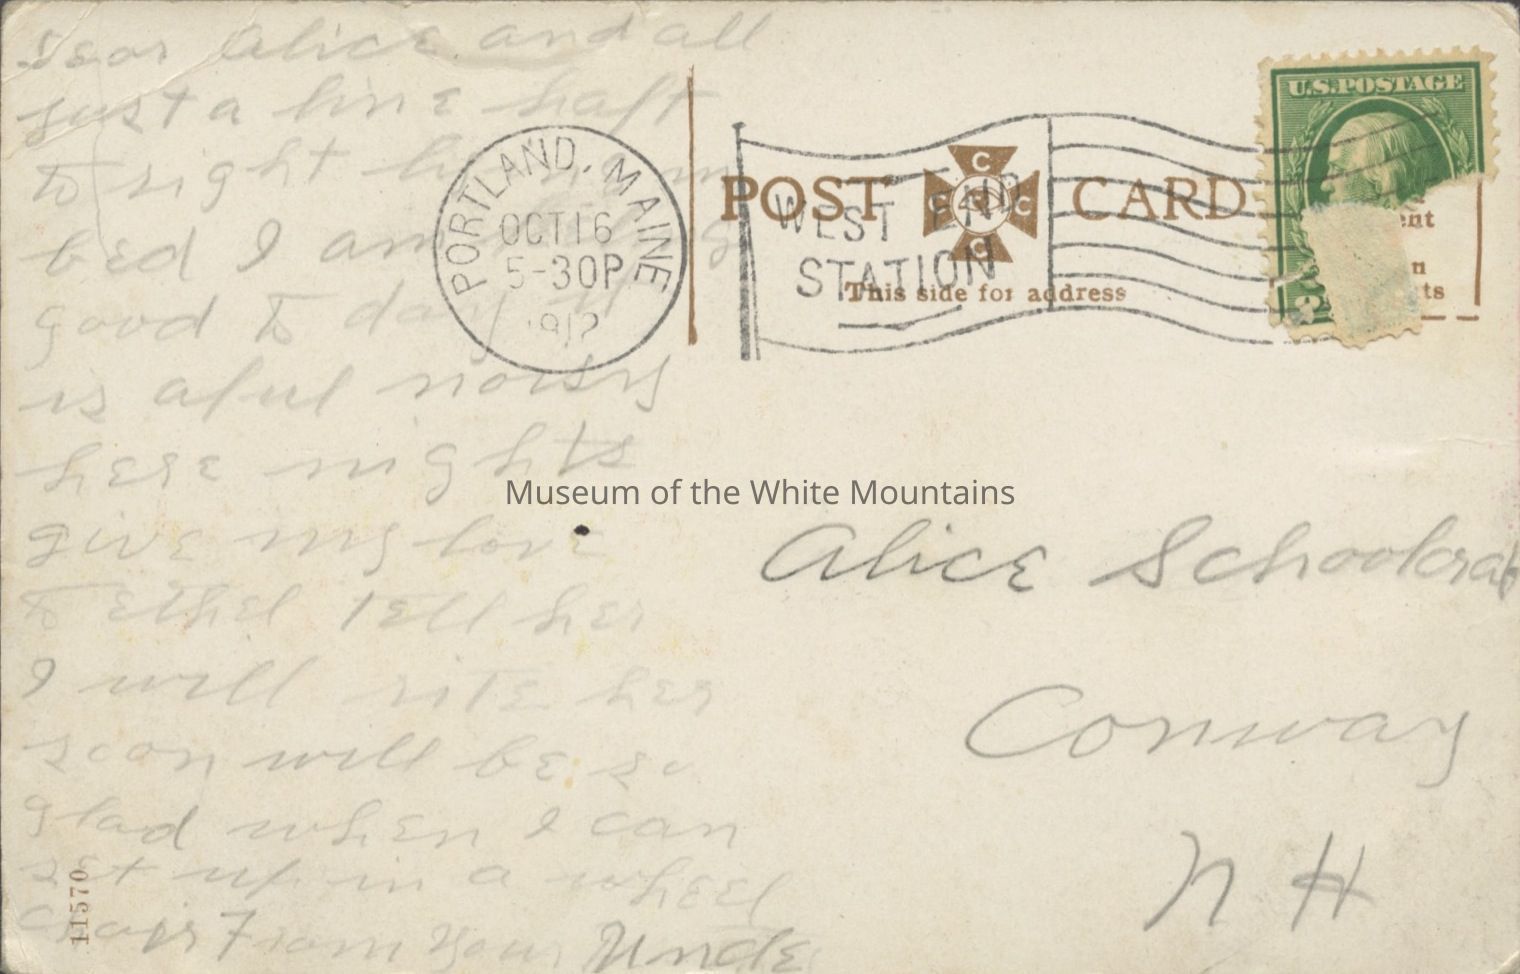 Dear Alice and all
just a line haft
to right
bed I am
good to day
is aful noisy
here nights
give my love
to Ethel tell her
I will rite her
soon will be so
glad when I can
set up in a wheel
chair From your Uncle
11570
PORTLAND, MAINE
OCT 16
5-30P
WEST END
STATION
POST CARD
C C C C
This side for address
U.S. POSTAGE
ent
n
ts
Museum of the White Mountains
Alice Schoolcraf
Conway
N H